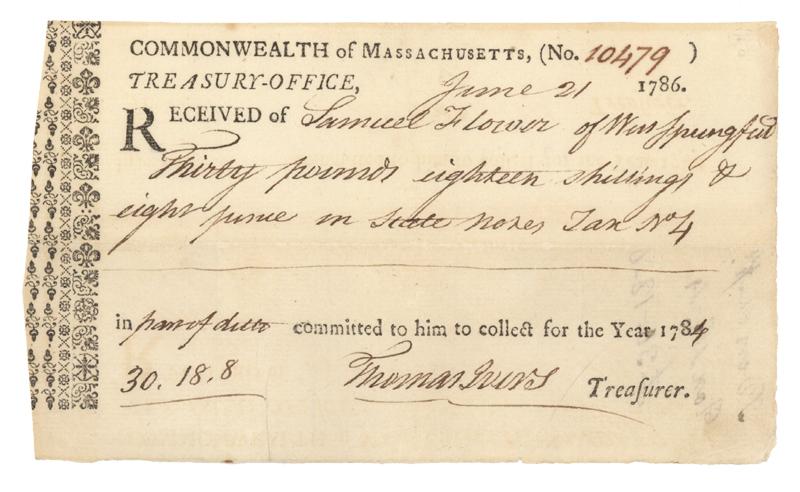 COMMONWEALTH of MASSACHUSETTS, (No. 10479 )
TREASURY-OFFICE, June 21 1786.
RECEIVED of Samuel Flower of West Springfield
Thirty pounds eighteen shillings &
eight pence in State Notes Tax No 4
in part of ditto committed to him to collect for the Year 1784
30.18.8 Thomas Ivers Treasurer.